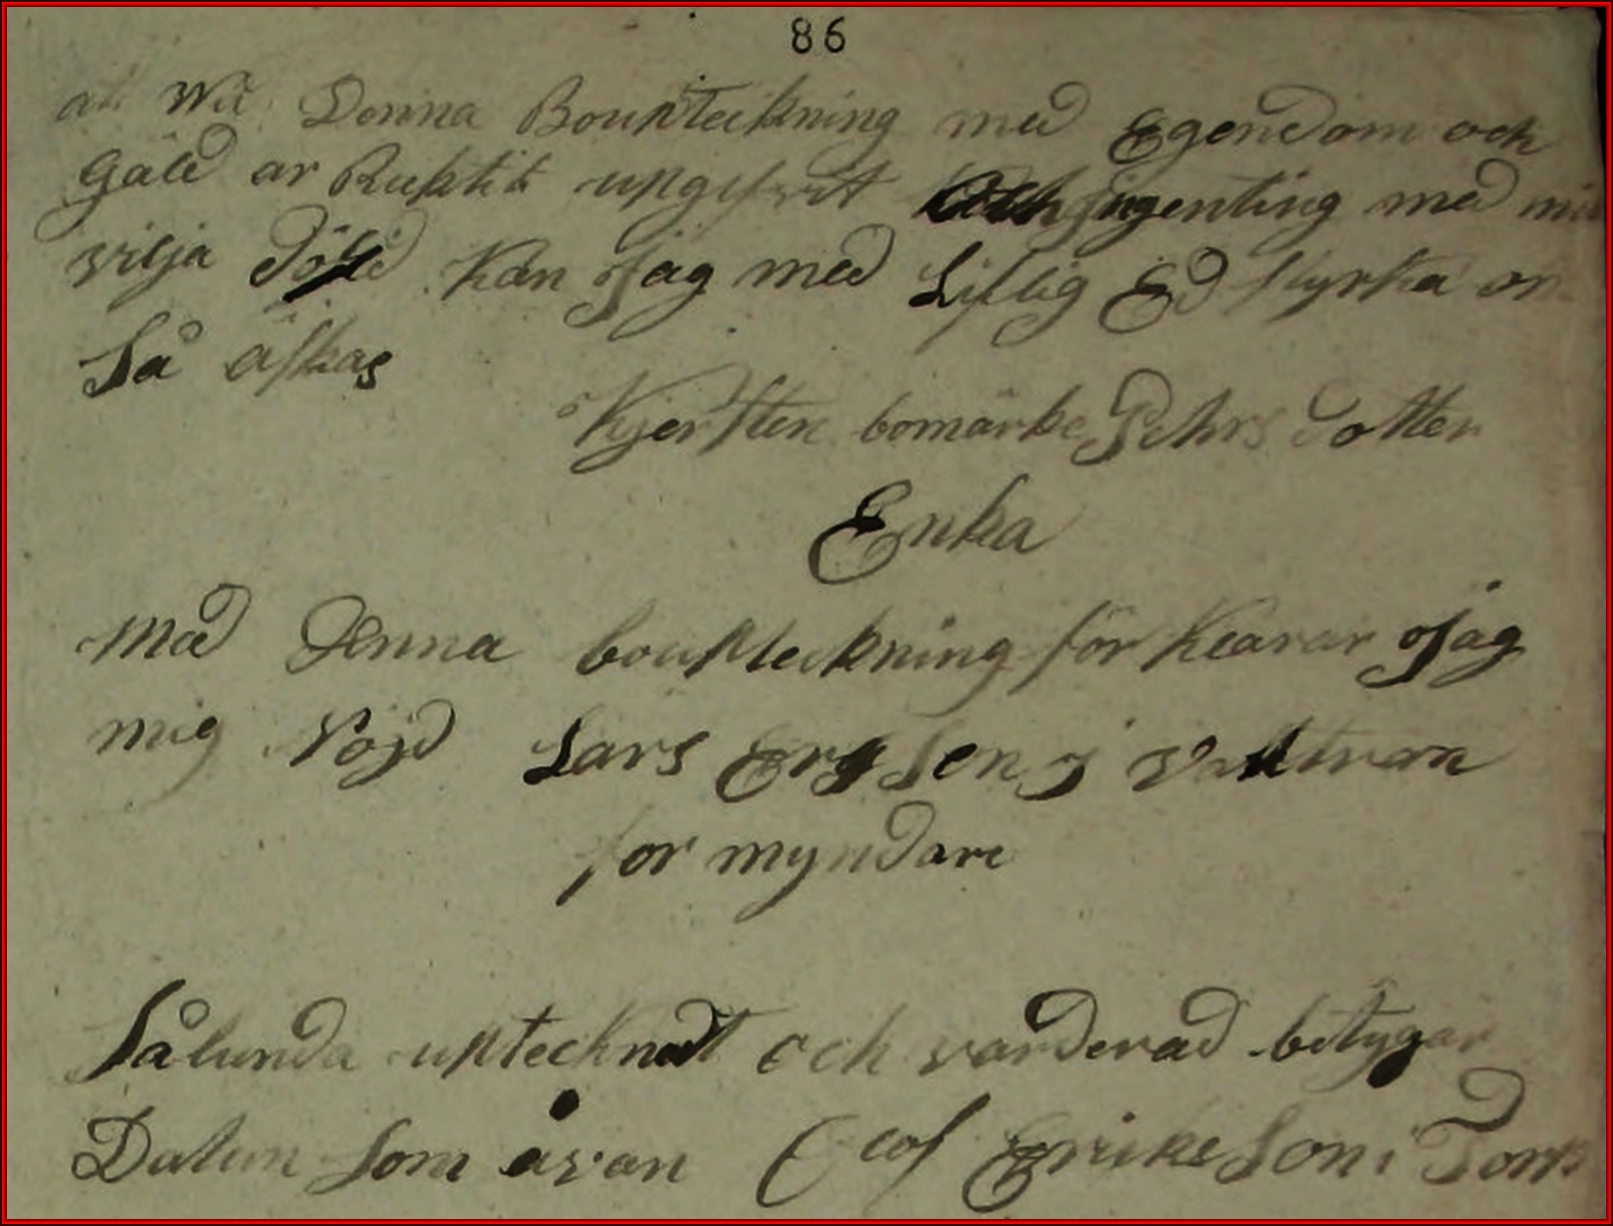 86
at wid Denna Boupteckning med Egendom och
Gäld ar Ricktit upgifvit Och ingenting med min
vilja döld kan Jag med Liflig Ed styrka om
Så äskas
Kjersten bomärke Pehrs Dotter
Enka
Med Denna boupteckning för klarar Jag
mig Nöjd Lars Ersson i
for myndare
Sålunda uptecknadt och varderad betygar
Datum Som åvan Olof Erikesson i Torp